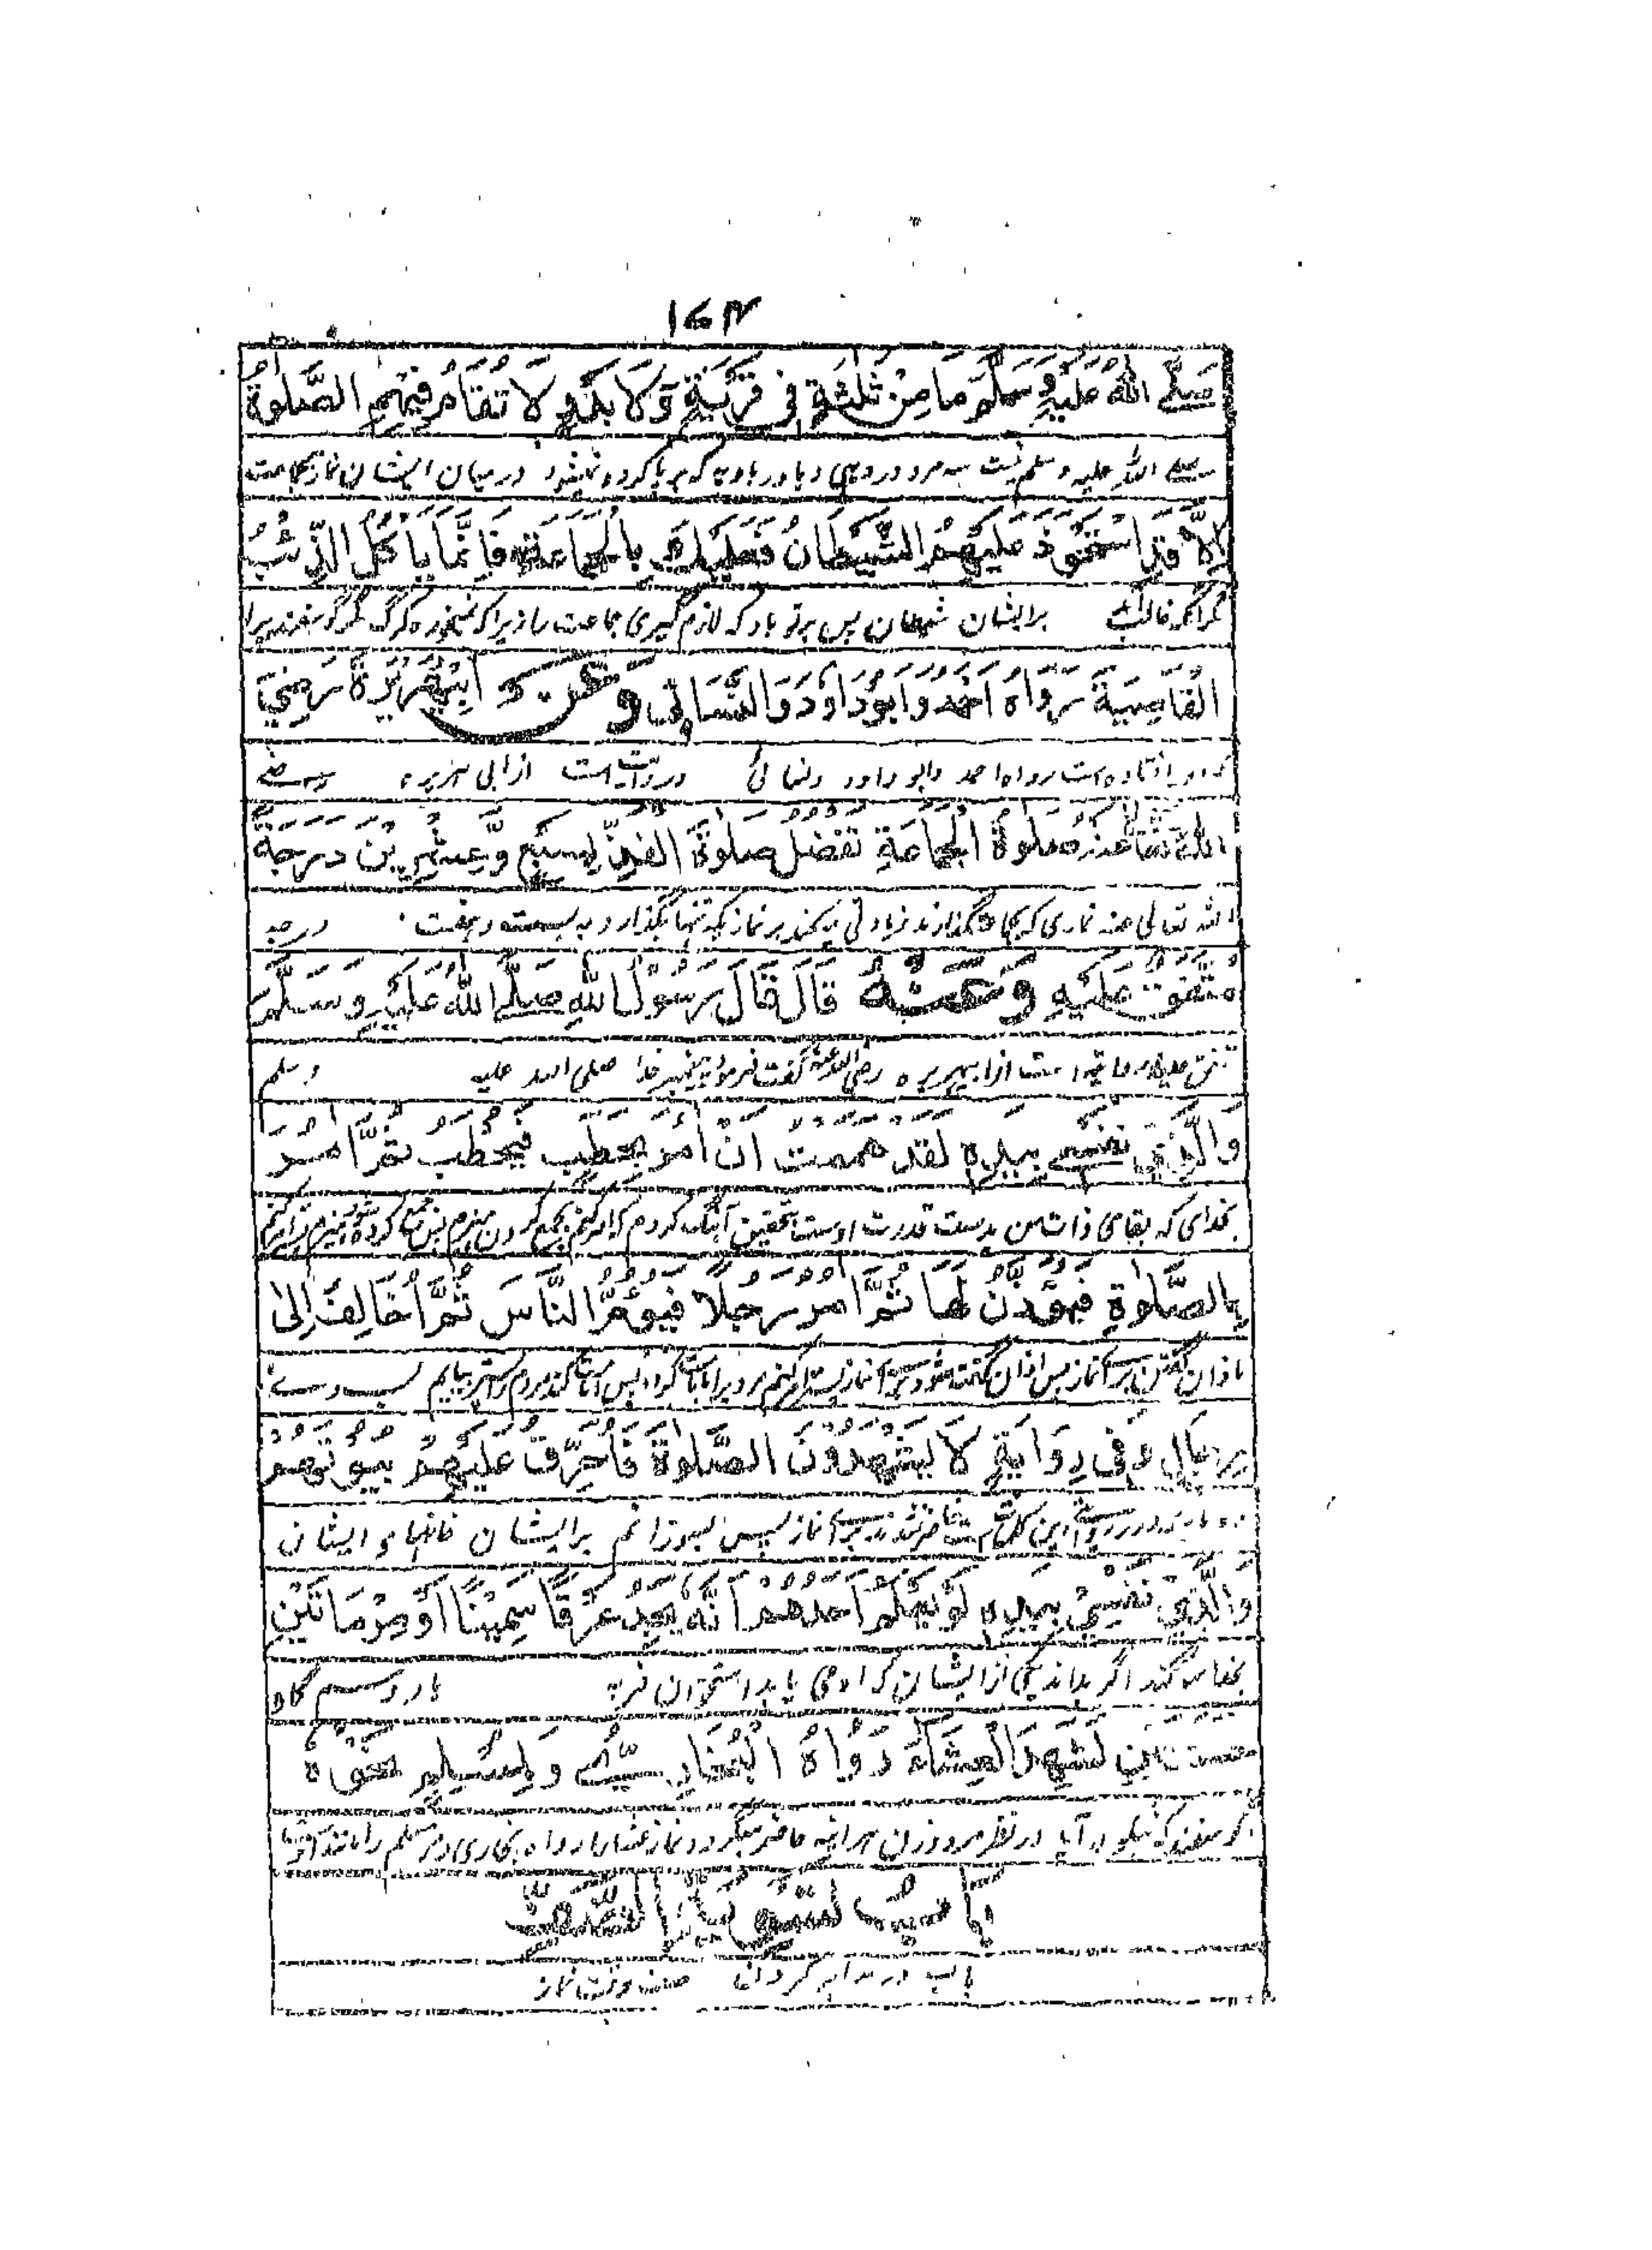 ۱۶۴
صَلَّى اللهُ عَلَيْهِ وَسَلَّمَ مَا مِنْ ثَلٰثَةٍ فِي قَرْيَةٍ وَّلَا بَدْوٍ لَا تُقَامُ فِيْهِمِ الصَّلٰوةُ
صلے اللہ علیہ وسلم نیست سه مرد در دہی و یا در بادیه که برپا کرده نمیشود درمیان ایشان نماز بجماعت
اِلَّا قَدِ اسْتَحْوَذَ عَلَيْهِمُ الشَّيْطَانُ فَعَلَيْكَ بِالْجَمَاعَةِ فَاِنَّمَا يَاْكُلُ الذِّئْبُ
مگر برایشان شیطان پس بر تو باد که لازم گیری جماعت را زیرا که نمیخورد گرگ مگر گوسفندیرا
الْقَاصِيَةَ رَوَاهُ اَحْمَدُ وَاَبُوْدَاوٗدَ وَالنَّسَائِى وَعَنْ اَبِيْ هُرَيْرَةَ رَضِيَ
که دور افتاده است رواه احمد وابو داود ونسائی و روایت است از ابی هریره رضے
اللهُ تَعَالٰى عَنْهُ صَلٰوةُ الْجَمَاعَةِ تَفْضُلُ صَلٰوةَ الْفَذِّ بِسَبْعٍ وَّعِشْرِيْنَ دَرَجَةً
الله تعالی عنه نمازی که بجماعت گذارند زیادتی میکند بر نمازیکه تنها بگذارد به بیست و هفت درجه
مُتَّفَقٌ عَلَيْهِ وَعَنْهُ قَالَ قَالَ رَسُوْلُ اللهِ صَلَّى اللهُ عَلَيْهِ وَسَلَّمَ
است از ابیهریره رضی الله عنه گفت فرمود پیغمبر خدا صلی الله علیه وسلم
وَالَّذِيْ نَفْسِيْ بِيَدِهٖ لَقَدْ هَمَمْتُ اَنْ اٰمُرَ بِحَطَبٍ فَيُحْطَبَ ثُمَّ اٰمُرَ
بخدای که بقای ذات من بدست قدرت اوست بتحقیق آهنگ کردم که امر کنم بجمع کردن هیزم پس جمع کرده شود هیزم
بِالصَّلٰوةِ فَيُؤَذَّنَ لَهَا ثُمَّ اٰمُرَ رَجُلًا فَيَؤُمَّ النَّاسَ ثُمَّ اُخَالِفَ اِلٰى
باذان گفتن برای نماز پس اذان گفته شود برای نماز پستر امر کنم مردیرا پس امامت کند مردم را پستر بیایم بسوے
رِجَالٍ وَفِى رِوَايَةٍ لَا يَشْهَدُوْنَ الصَّلٰوةَ فَاُحَرِّقَ عَلَيْهِمْ بُيُوْتَهُمْ
این حاضر نشوند برای نماز پس بسوزانم برایشان خانهای ایشان
وَالَّذِيْ نَفْسِيْ بِيَدِهٖ لَوْ يَعْلَمُ اَحَدُهُمْ اَنَّهٗ يَجِدُ عَرْقًا سَمِيْنًا اَوْ مِرْمَاتَيْنِ
سوگند اگر بداند یکی از ایشان که او می یابد استخوان فربه یا دو سم گاو
حَسَنَتَيْنِ لَشَهِدَ الْعِشَاءَ رَوَاهُ الْبُخَارِيُّ وَلِمُسْلِمٍ نَحْوُهُ
گوسفند که نیکو در آید در نظر مرد وزن هر آئینه حاضر میگردد نماز عشا را رواه بخاری و مسلم را مانند آن
بَابُ تَسْوِيَةِ الصَّفِّ
باب در برابر کردن صف وقت نماز